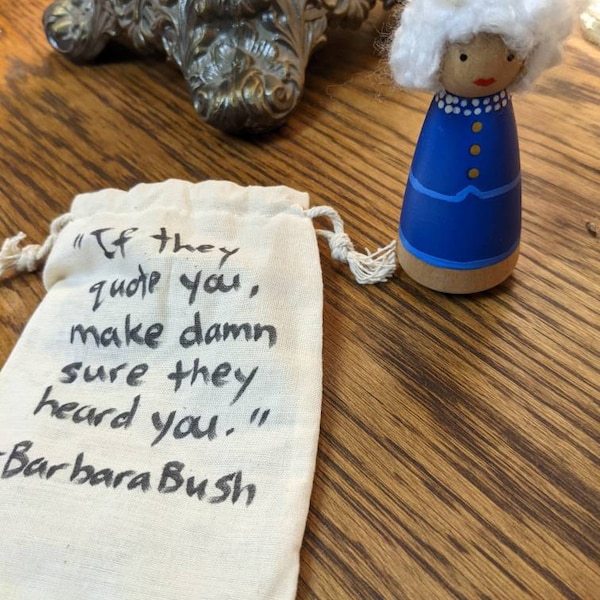 "If they
quote you,
make damn
sure they
heard you."
-Barbara Bush